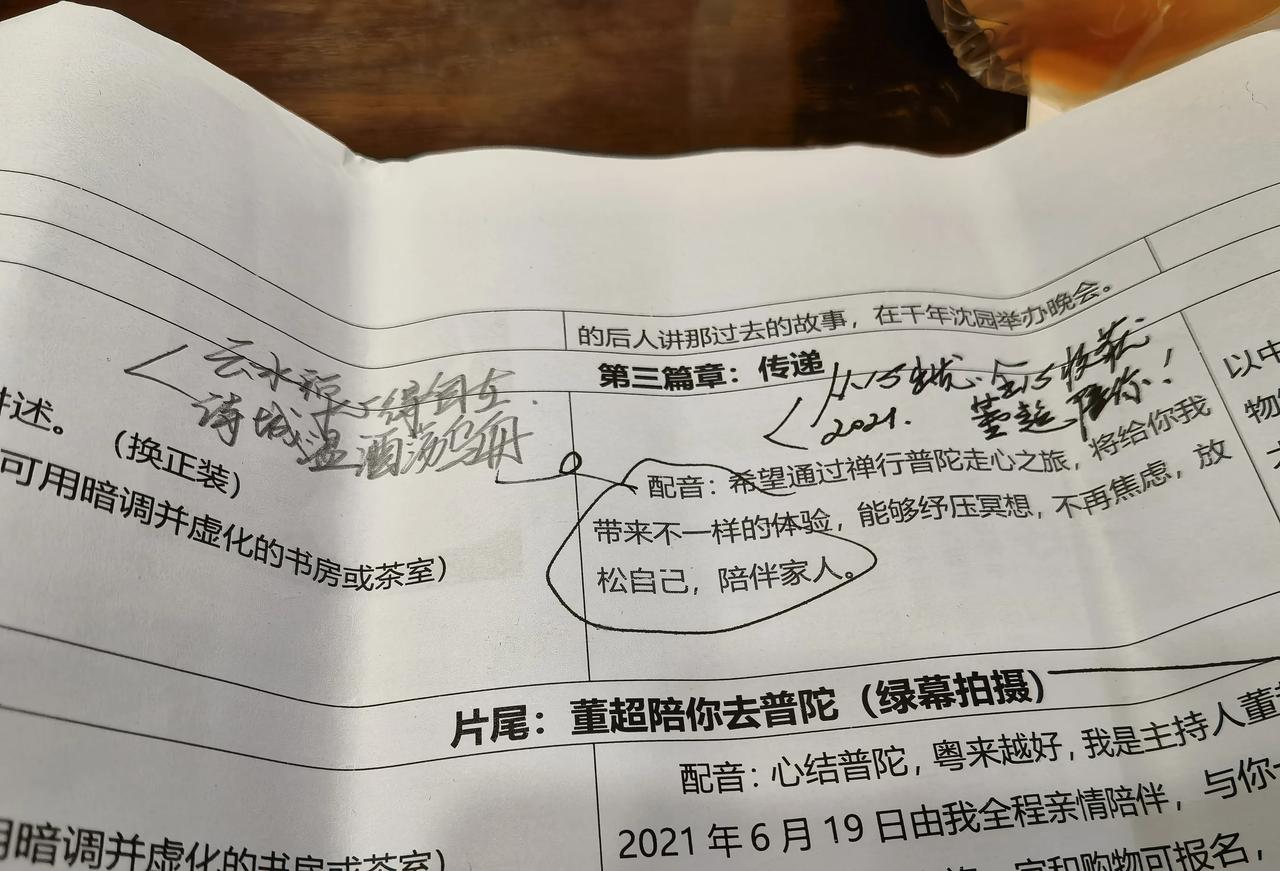 的后人讲那过去的故事，在千年沈园举办晚会。
第三篇章：传递
2021. 董超陪你！
讲述。（换正装）
可用暗调并虚化的书房或茶室）
配音：希望通过禅行普陀走心之旅，将给你我
带来不一样的体验，能够纾压冥想，不再焦虑，放
松自己，陪伴家人。
以中
物
片尾：董超陪你去普陀（绿幕拍摄）
配音：心结普陀，粤来越好，我是主持人董
2021年6月19日由我全程亲情陪伴，与你
用暗调并虚化的书房或茶室）
宜和购物可报名，